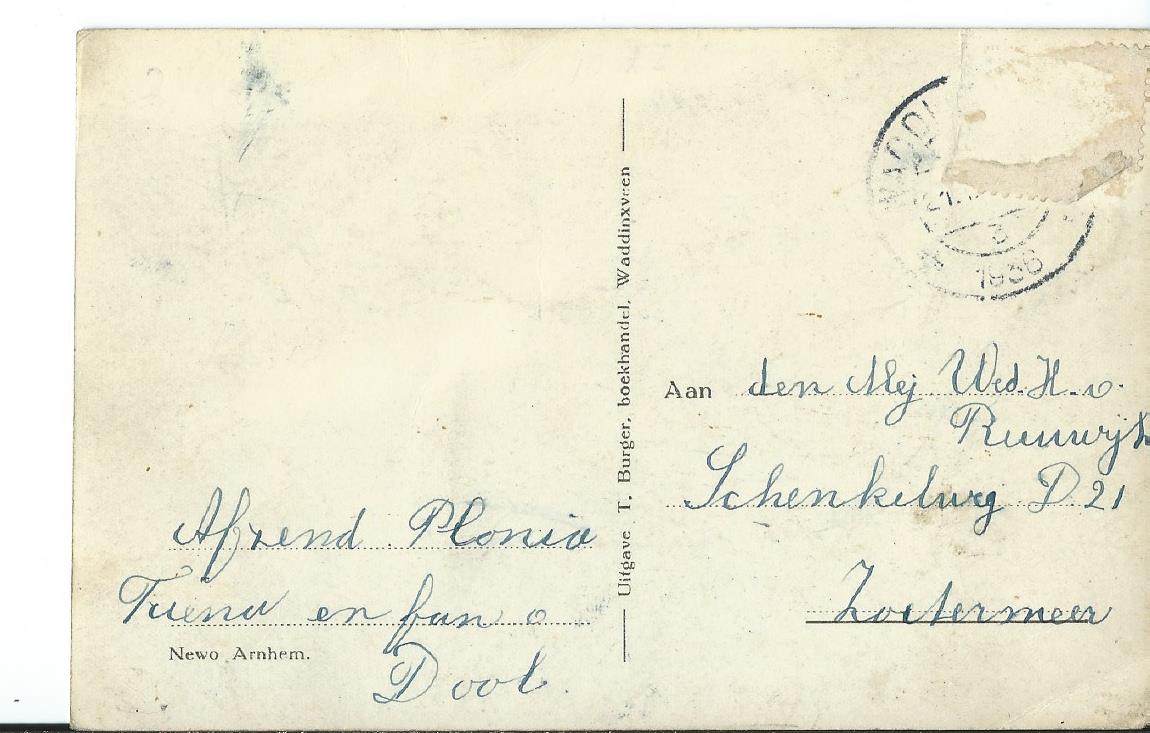 WADDI
21.
3
1936
Uitgave T. Burger, boekhandel, Waddinxveen
Aan den Mej Wed. H. v.
Ruuwijk
Schenkelweg D 21
Zoetermeer
Afzend Plonia
Truena en fan v
Dool
Newo Arnhem.